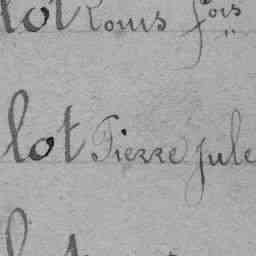 lot Louis fois
lot Pierre Jule